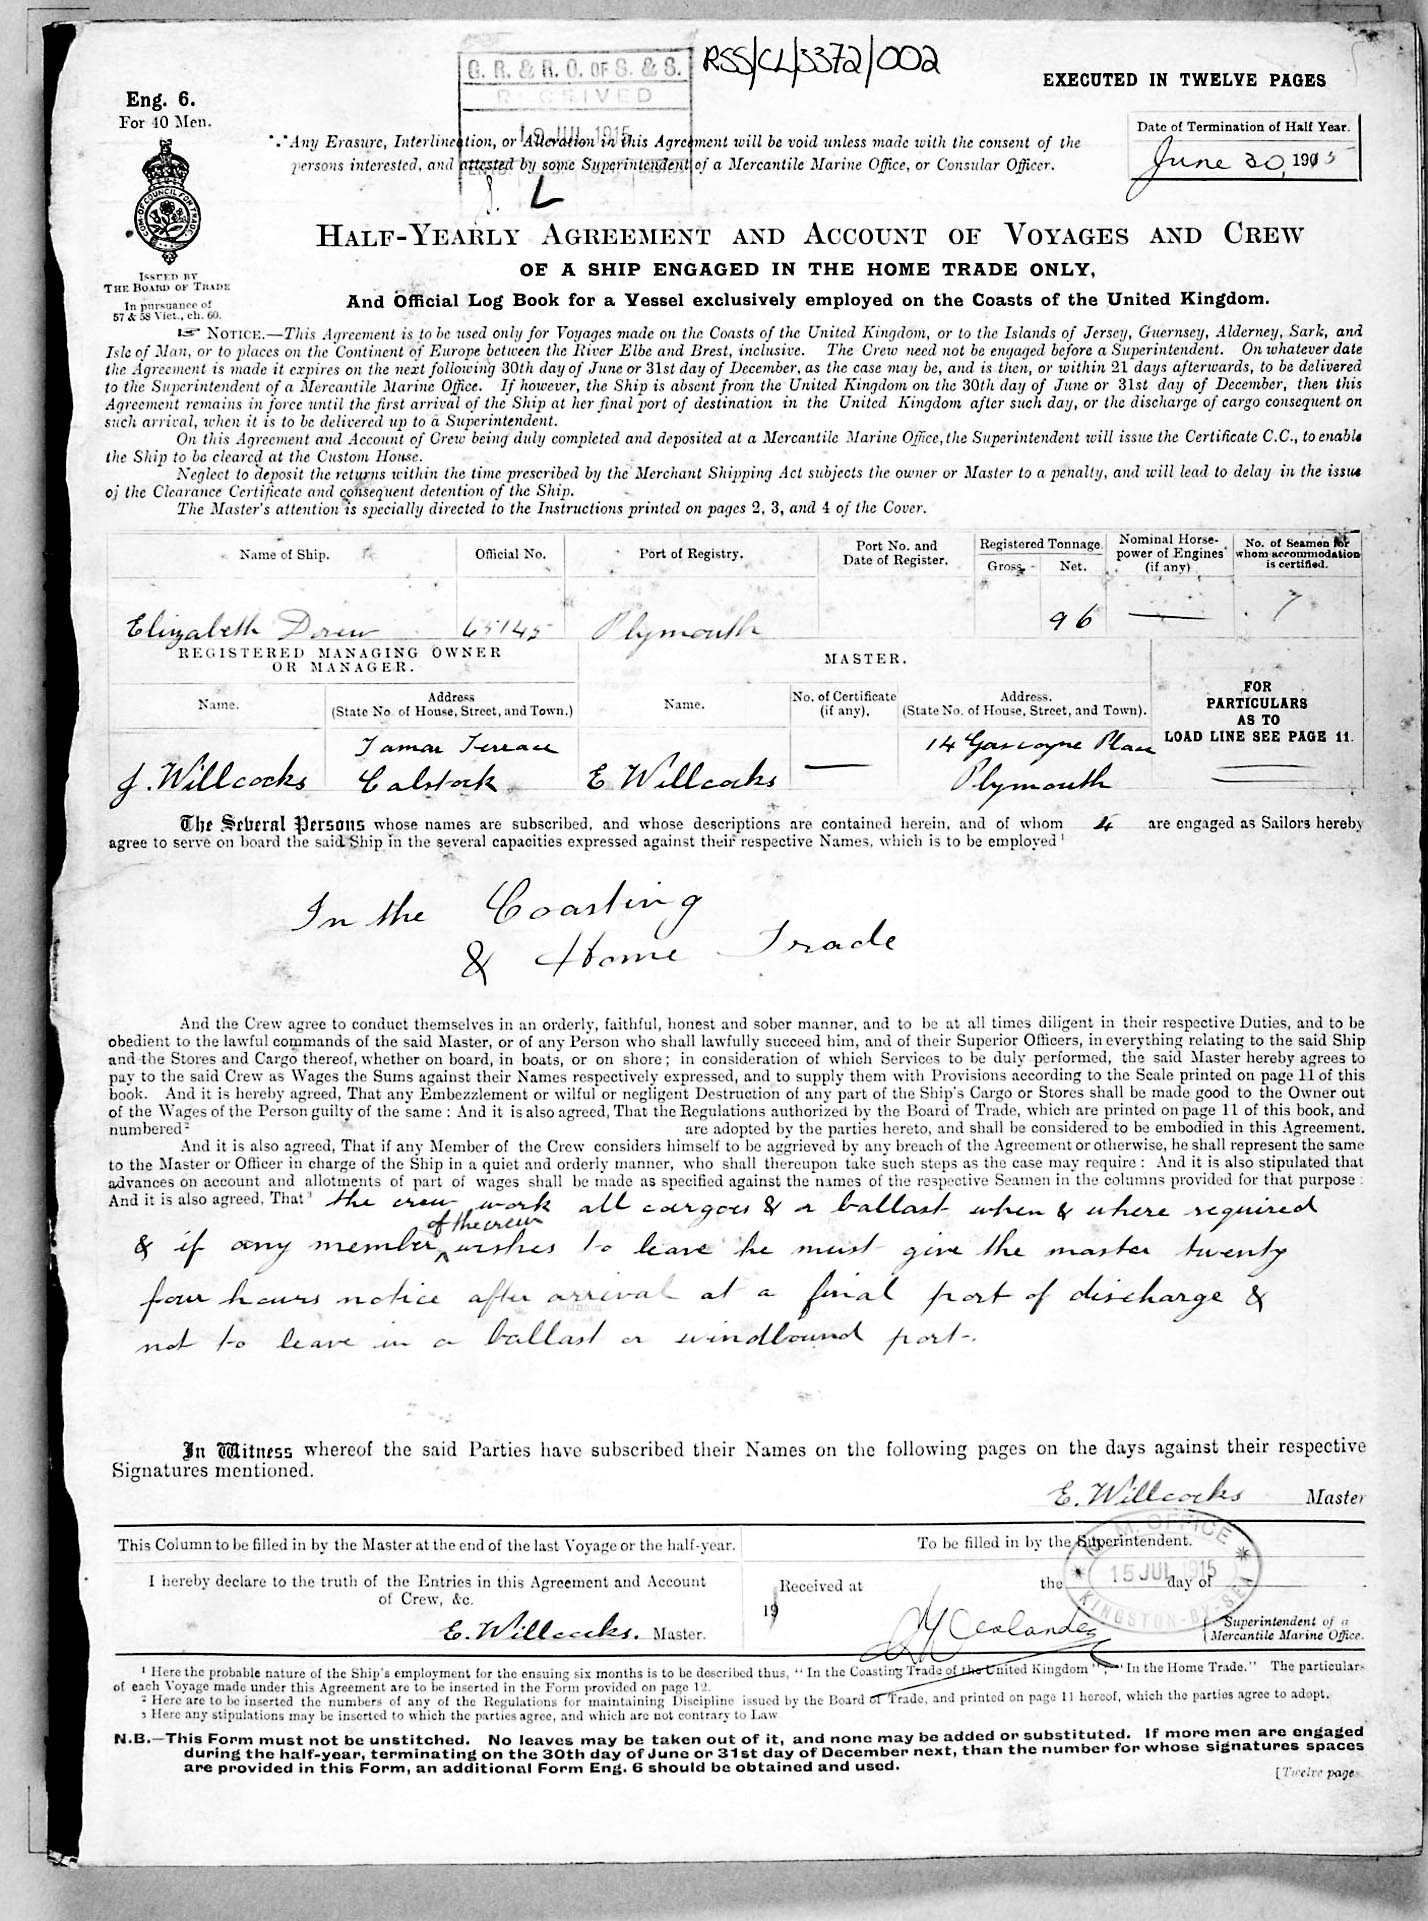 RSS/CL/3372/002
G. R. & R. O. OF S. & S.
RECEIVED
19 JUL 1915
EXECUTED IN TWELVE PAGES
Eng. 6.
For 40 Men.
Date of Termination of Half Year.
June 30, 1915
Any Erasure, Interlineation, or Alteration in this Agreement will be void unless made with the consent of the
persons interested, and attested by some Superintendent of a Mercantile Marine Office, or Consular Officer.
L
COM: OF COUNCIL FOR TRADE
ISSUED BY
THE BOARD OF TRADE
In pursuance of
57 & 58 Vict., ch. 60.
HALF-YEARLY AGREEMENT AND ACCOUNT OF VOYAGES AND CREW
OF A SHIP ENGAGED IN THE HOME TRADE ONLY,
And Official Log Book for a Vessel exclusively employed on the Coasts of the United Kingdom.
☞ NOTICE.—This Agreement is to be used only for Voyages made on the Coasts of the United Kingdom, or to the Islands of Jersey, Guernsey, Alderney, Sark, and
Isle of Man, or to places on the Continent of Europe between the River Elbe and Brest, inclusive. The Crew need not be engaged before a Superintendent. On whatever date
the Agreement is made it expires on the next following 30th day of June or 31st day of December, as the case may be, and is then, or within 21 days afterwards, to be delivered
to the Superintendent of a Mercantile Marine Office. If however, the Ship is absent from the United Kingdom on the 30th day of June or 31st day of December, then this
Agreement remains in force until the first arrival of the Ship at her final port of destination in the United Kingdom after such day, or the discharge of cargo consequent on
such arrival, when it is to be delivered up to a Superintendent.
On this Agreement and Account of Crew being duly completed and deposited at a Mercantile Marine Office, the Superintendent will issue the Certificate C.C., to enable
the Ship to be cleared at the Custom House.
Neglect to deposit the returns within the time prescribed by the Merchant Shipping Act subjects the owner or Master to a penalty, and will lead to delay in the issue
of the Clearance Certificate and consequent detention of the Ship.
The Master's attention is specially directed to the Instructions printed on pages 2, 3, and 4 of the Cover.
Name of Ship. Official No. Port of Registry. Port No. and Date of Register. Registered Tonnage. Gross. Net. Nominal Horse-power of Engines (if any) No. of Seamen for whom accommodation is certified.
Elizabeth Drew 65145 Plymouth 96 — 7
REGISTERED MANAGING OWNER
OR MANAGER.
MASTER.
Name. Address (State No. of House, Street, and Town.) Name. No. of Certificate (if any). Address. (State No. of House, Street, and Town).
FOR
PARTICULARS
AS TO
LOAD LINE SEE PAGE 11.
Tamar Terrace 14 Gascoyne Place
J. Willcocks Calstock E Willcocks — Plymouth
The Several Persons whose names are subscribed, and whose descriptions are contained herein, and of whom 4 are engaged as Sailors hereby
agree to serve on board the said Ship in the several capacities expressed against their respective Names, which is to be employed¹
In the Coasting
& Home Trade
And the Crew agree to conduct themselves in an orderly, faithful, honest and sober manner, and to be at all times diligent in their respective Duties, and to be
obedient to the lawful commands of the said Master, or of any Person who shall lawfully succeed him, and of their Superior Officers, in everything relating to the said Ship
and the Stores and Cargo thereof, whether on board, in boats, or on shore; in consideration of which Services to be duly performed, the said Master hereby agrees to
pay to the said Crew as Wages the Sums against their Names respectively expressed, and to supply them with Provisions according to the Scale printed on page 11 of this
book. And it is hereby agreed, That any Embezzlement or wilful or negligent Destruction of any part of the Ship's Cargo or Stores shall be made good to the Owner out
of the Wages of the Person guilty of the same: And it is also agreed, That the Regulations authorized by the Board of Trade, which are printed on page 11 of this book, and
numbered² are adopted by the parties hereto, and shall be considered to be embodied in this Agreement.
And it is also agreed, That if any Member of the Crew considers himself to be aggrieved by any breach of the Agreement or otherwise, he shall represent the same
to the Master or Officer in charge of the Ship in a quiet and orderly manner, who shall thereupon take such steps as the case may require: And it is also stipulated that
advances on account and allotments of part of wages shall be made as specified against the names of the respective Seamen in the columns provided for that purpose:
And it is also agreed, That³ the crew work all cargoes & or ballast when & where required
& if any member of the crew wishes to leave he must give the master twenty
four hours notice after arrival at a final port of discharge &
not to leave in a ballast or windbound port.
In Witness whereof the said Parties have subscribed their Names on the following pages on the days against their respective
Signatures mentioned.
E. Willcocks Master
This Column to be filled in by the Master at the end of the last Voyage or the half-year.
To be filled in by the Superintendent.
I hereby declare to the truth of the Entries in this Agreement and Account
of Crew, &c.
E. Willcocks. Master.
Received at the day of
19
M. M. OFFICE
15 JUL 1915
KINGSTON-BY-SEA
Superintendent of a
Mercantile Marine Office.
¹ Here the probable nature of the Ship's employment for the ensuing six months is to be described thus, "In the Coasting Trade of the United Kingdom": "In the Home Trade." The particulars
of each Voyage made under this Agreement are to be inserted in the Form provided on page 12.
² Here are to be inserted the numbers of any of the Regulations for maintaining Discipline issued by the Board of Trade, and printed on page 11 hereof, which the parties agree to adopt.
³ Here any stipulations may be inserted to which the parties agree, and which are not contrary to Law
N.B.—This Form must not be unstitched. No leaves may be taken out of it, and none may be added or substituted. If more men are engaged
during the half-year, terminating on the 30th day of June or 31st day of December next, than the number for whose signatures spaces
are provided in this Form, an additional Form Eng. 6 should be obtained and used.
[Twelve pages